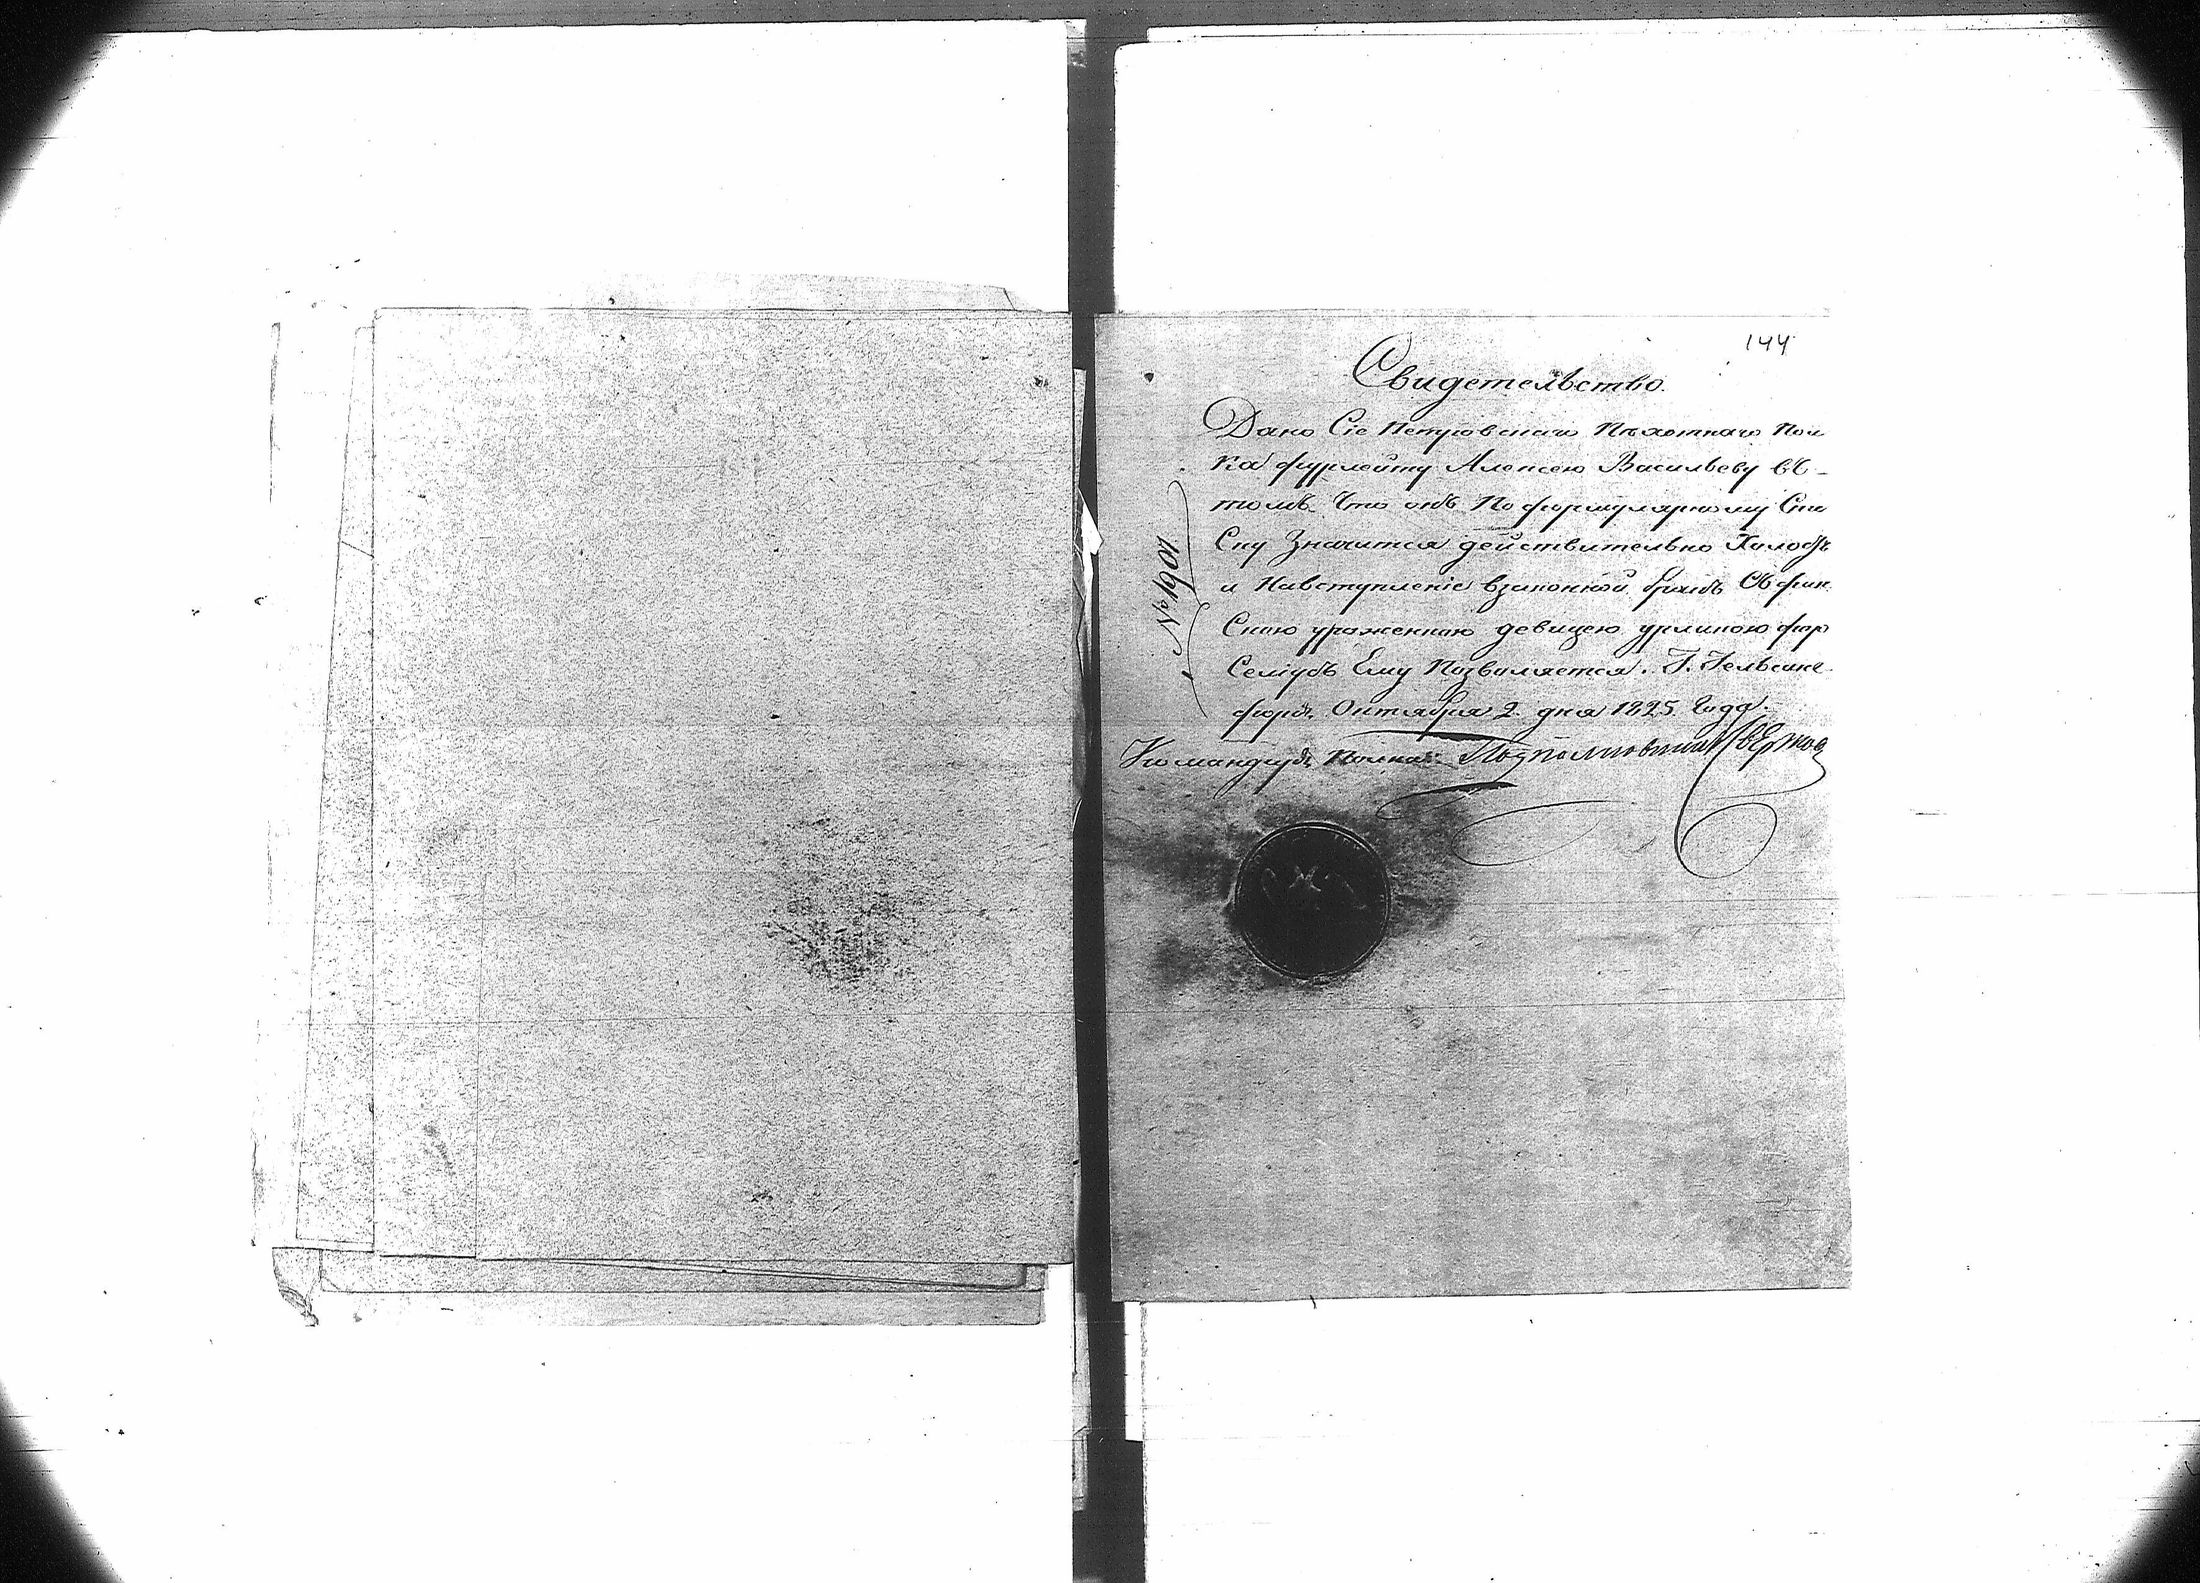 144
Свидетельство
Дано Сіе Петровскаго Пѣхотнаго Пол
ка фурлейту Алексею Васильеву въ
томъ Что онъ По формулярному Спи
Ску Значится действительно Холостъ
и Навступленіе взаконной бракъ Съ фин
Скою уроженкою девицею улиною фор
Селіусъ Ему Позволяется. Г. Гельсинг
форсъ. Октября 2 дня 1825 Года.
Командиръ Полка Подполковникъ
№ 1907